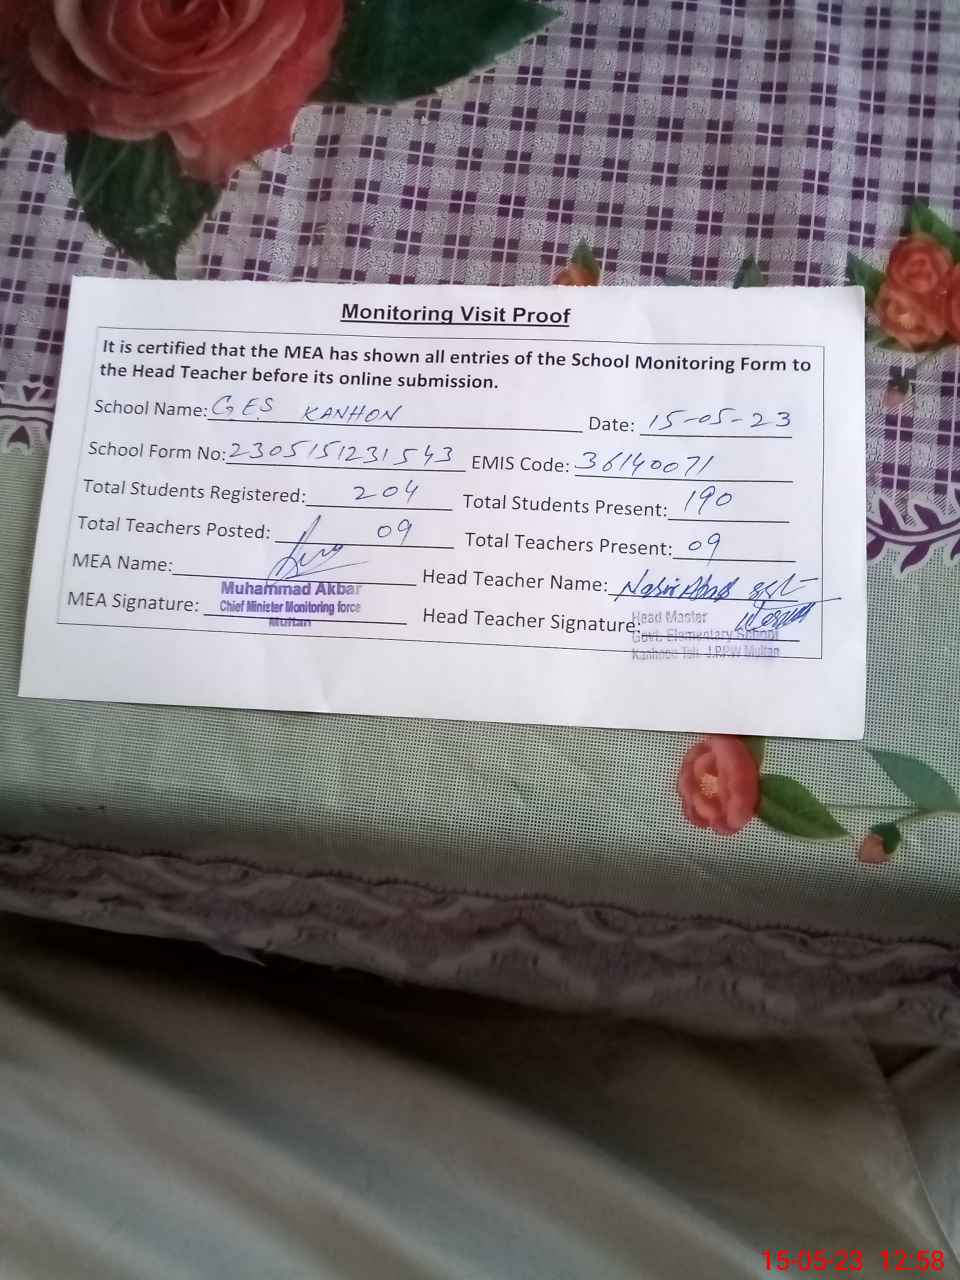 Monitoring Visit Proof
It is certified that the MEA has shown all entries of the School Monitoring Form to
the Head Teacher before its online submission.
School Name: G.E.S KANHON Date: 15-05-23
School Form No: 2305151231543 EMIS Code: 36140071
Total Students Registered: 204 Total Students Present: 190
Total Teachers Posted: 09 Total Teachers Present: 09
MEA Name: Head Teacher Name: Nasir Abbas
Muhammad Akbar
Chief Minister Monitoring force
Multan
MEA Signature: Head Teacher Signature:
Head Master
Govt. Elementary School
Multan
15-05-23 12:58